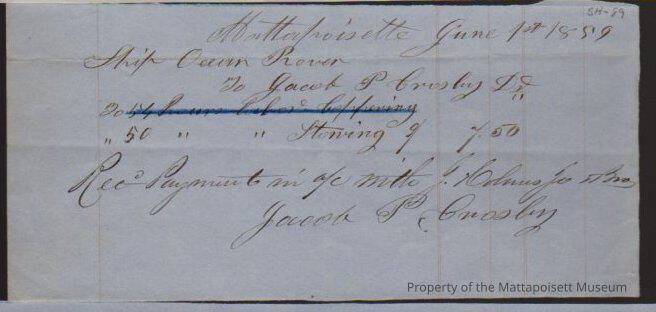 SH-89
Mattapoisette June 1st 1859
Ship Ocean Rover
To Jacob P Crosby Dr
To 54 hours labor Coppering
" 50 " " Stowing @ 7.50
Recd Payment in a/c with J. Holmes Jr & Bro
Jacob P. Crosby
Property of the Mattapoisett Museum